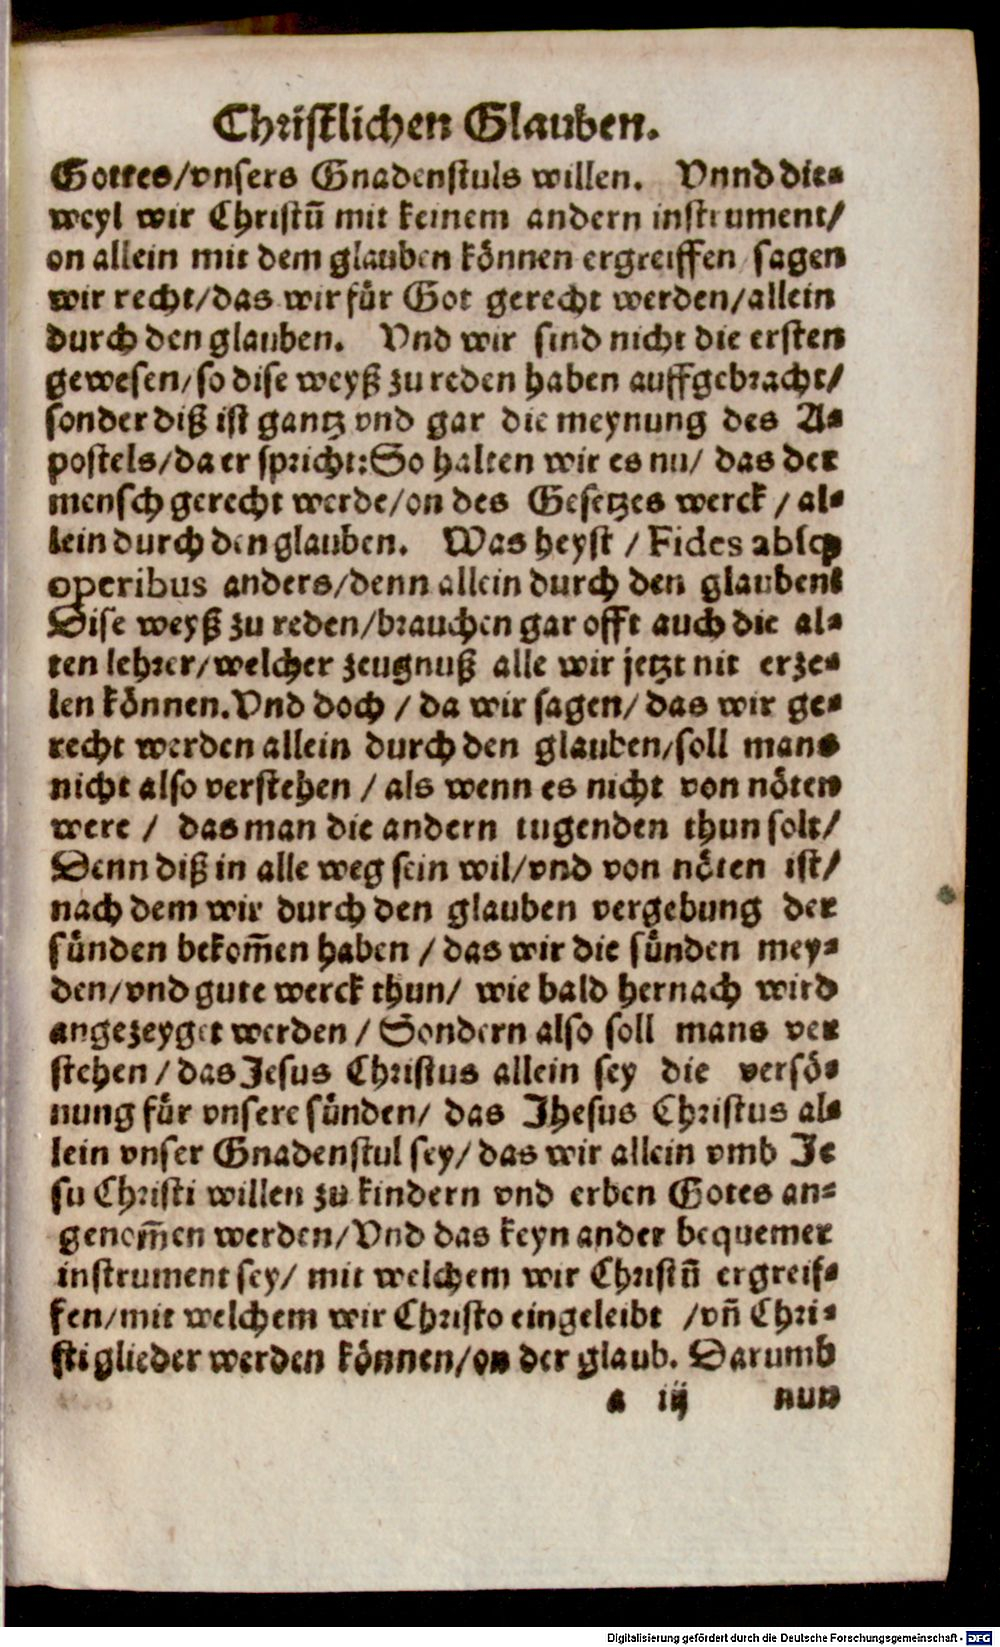 Christlichen Glauben.
Gottes/vnsers Gnadenstuls willen. Vnnd die-
weyl wir Christū mit keinem andern instrument/
on allein mit dem glauben können ergreiffen/sagen
wir recht/das wir für Got gerecht werden/allein
durch den glauben. Vnd wir sind nicht die ersten
gewesen/so dise weyß zu reden haben auffgebracht/
sonder diß ist gantz vnd gar die meynung des A-
postels/da er spricht:So halten wir es nu/ das der
mensch gerecht werde/on des Gesetzes werck / al-
lein durch den glauben. Was heyst / Fides absq;
operibus anders/denn allein durch den glauben?
Dise weyß zu reden/brauchen gar offt auch die al-
ten lehrer/welcher zeugnuß alle wir jetzt nit erze-
len können.Vnd doch / da wir sagen/ das wir ge-
recht werden allein durch den glauben/soll mans
nicht also verstehen / als wenn es nicht von nöten
were / das man die andern tugenden thun solt/
Denn diß in alle weg sein wil/vnd von nöten ist/
nach dem wir durch den glauben vergebung der
sünden bekom̄en haben / das wir die sünden mey-
den/vnd gute werck thun/ wie bald hernach wird
angezeyget werden / Sondern also soll mans ver
stehen / das Jesus Christus allein sey die versö-
nung für vnsere sünden/ das Jhesus Christus al-
lein vnser Gnadenstul sey/ das wir allein vmb Je
su Christi willen zu kindern vnd erben Gotes an-
genom̄en werden/Vnd das keyn ander bequemer
instrument sey/ mit welchem wir Christū ergreif-
fen/mit welchem wir Christo eingeleibt /vn̄ Chri-
sti glieder werden können/on der glaub. Darumb
a iij nun
Digitalisierung gefördert durch die Deutsche Forschungsgemeinschaft - DFG